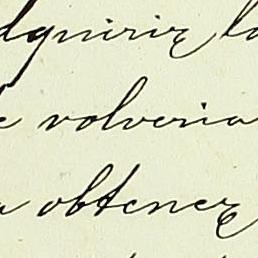 adquirir la
volveria
obtener